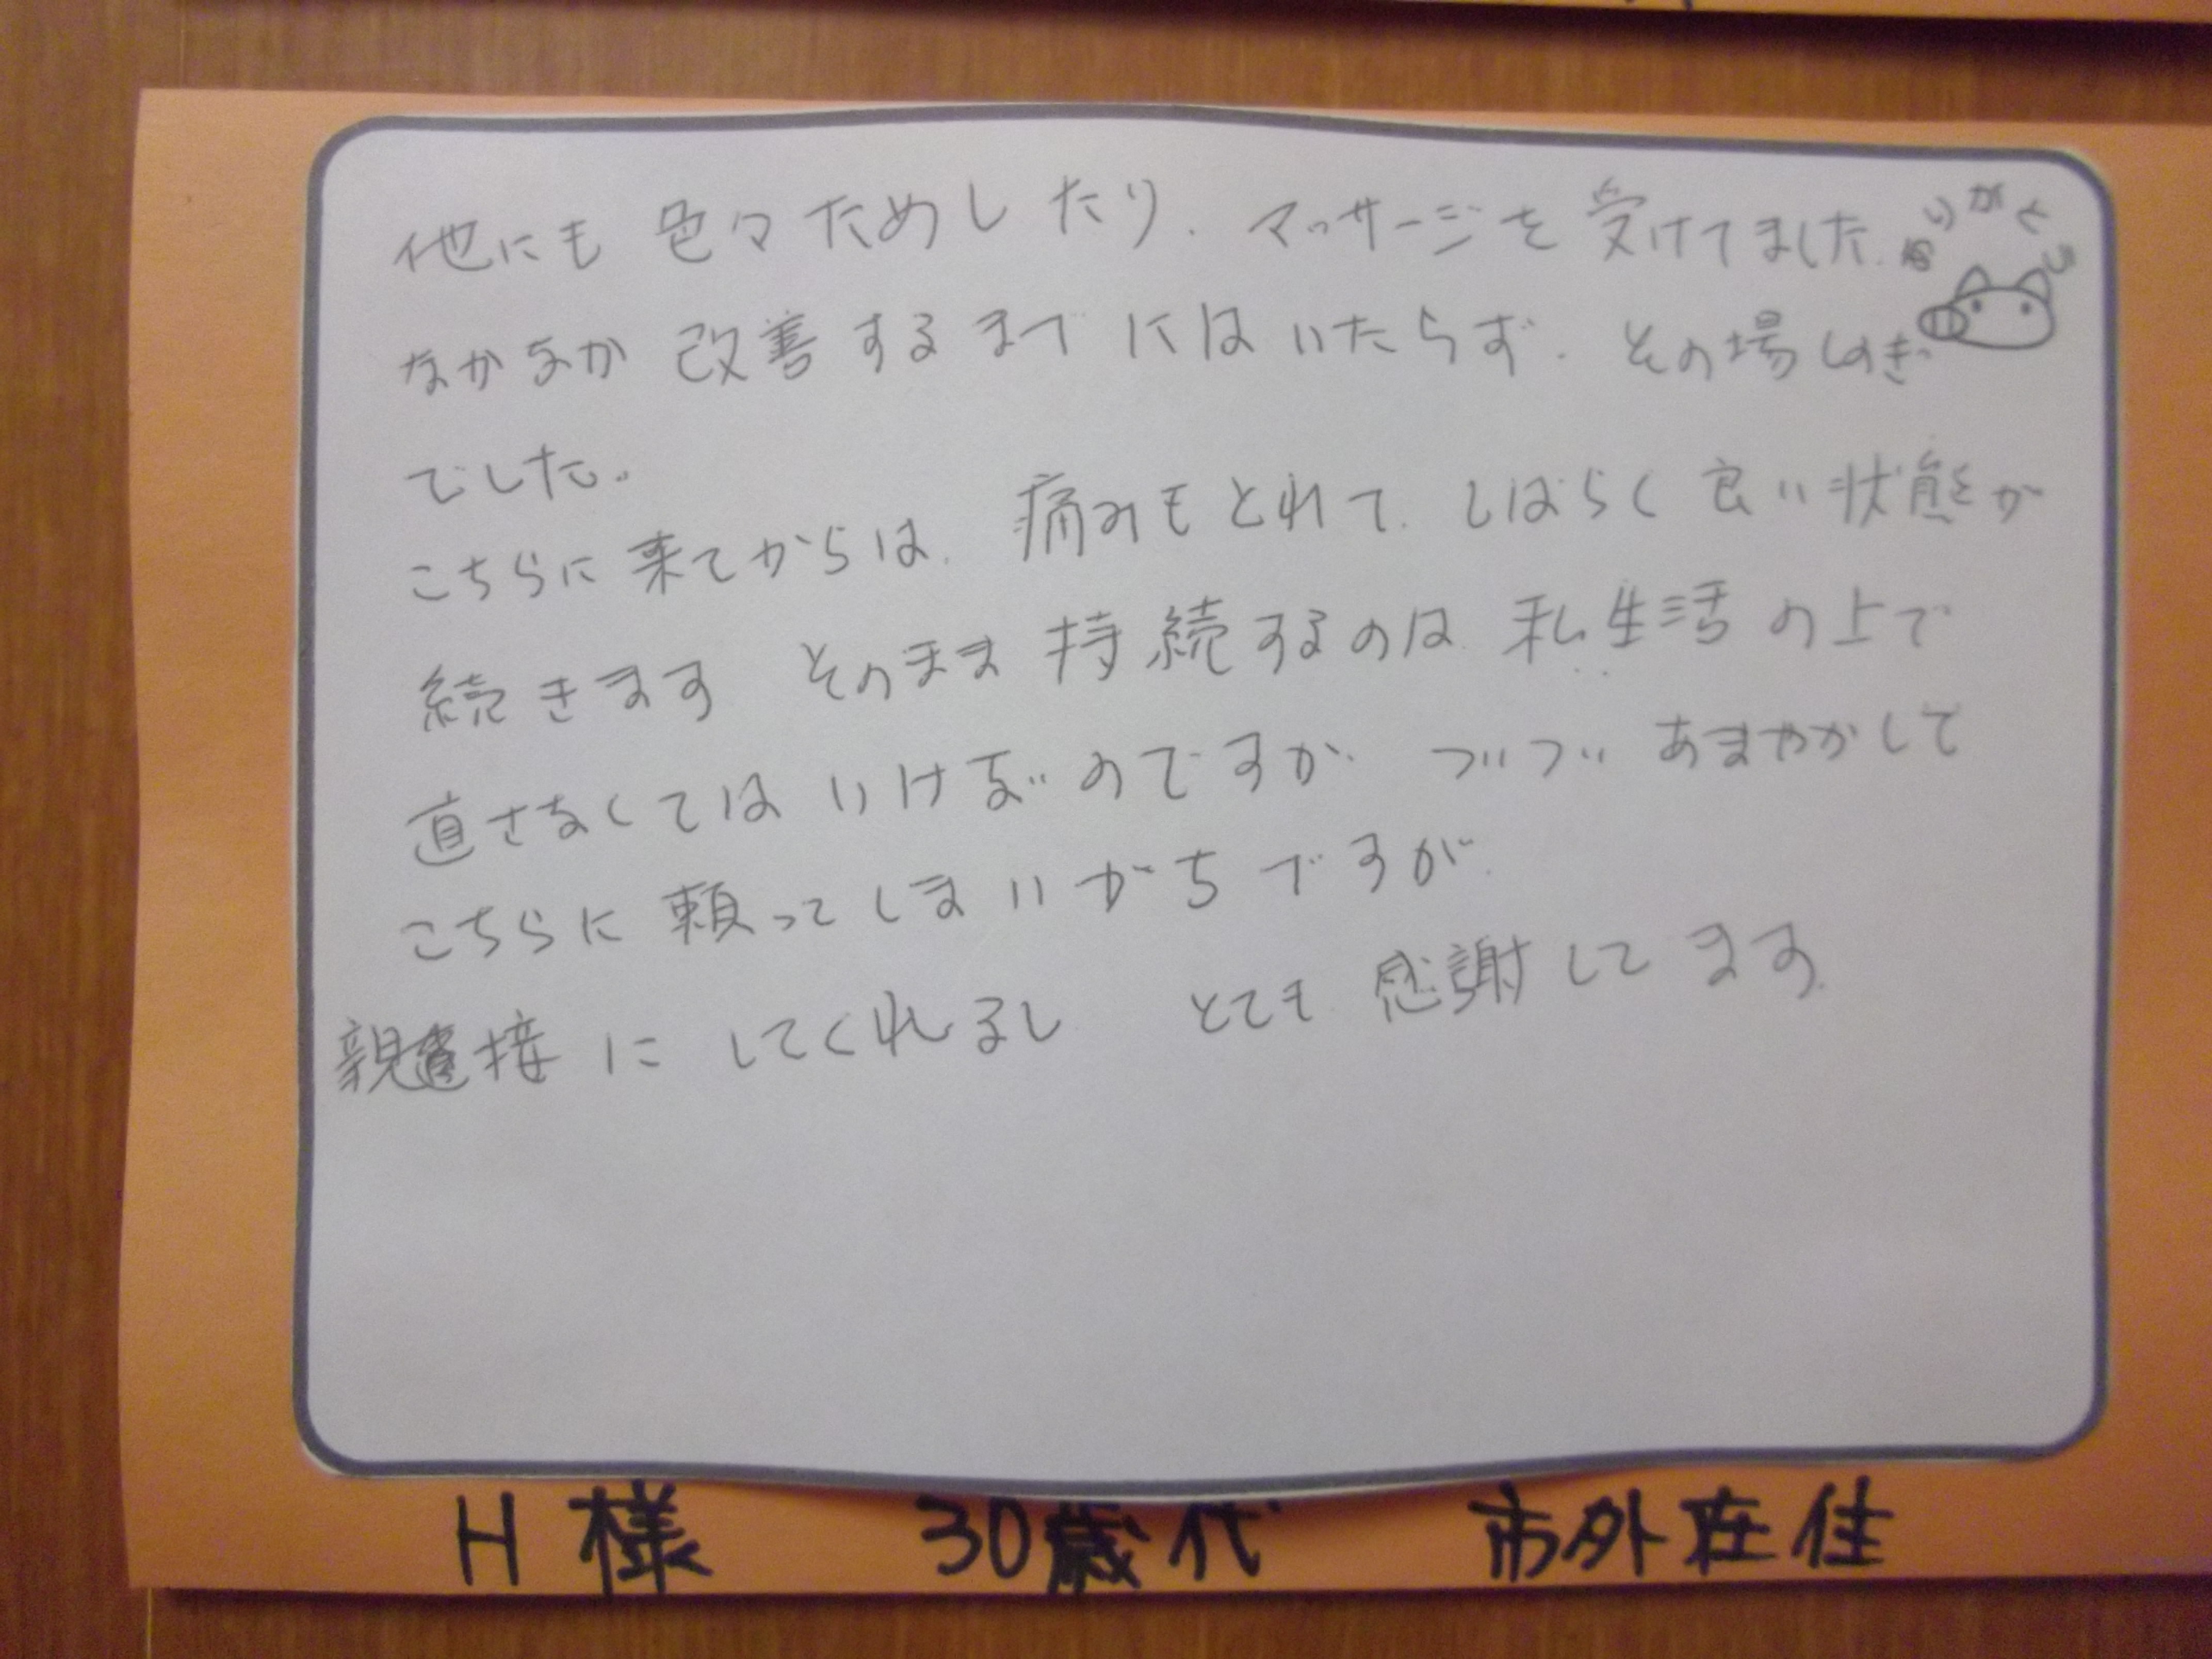 他にも色々ためしたり、マッサージを受けてました。
ありがとう
なかなか改善するまでにはいたらず、その場しのぎ
でした。
こちらに来てからは、痛みもとれて、しばらく良い状態が
続きます そのまま持続するのは私生活の上で
直さなくてはいけないのですが、ついつい あまやかして
こちらに頼ってしまいがちですが、
接に してくれるし とても感謝してます。
H様 30歳代 市外在住